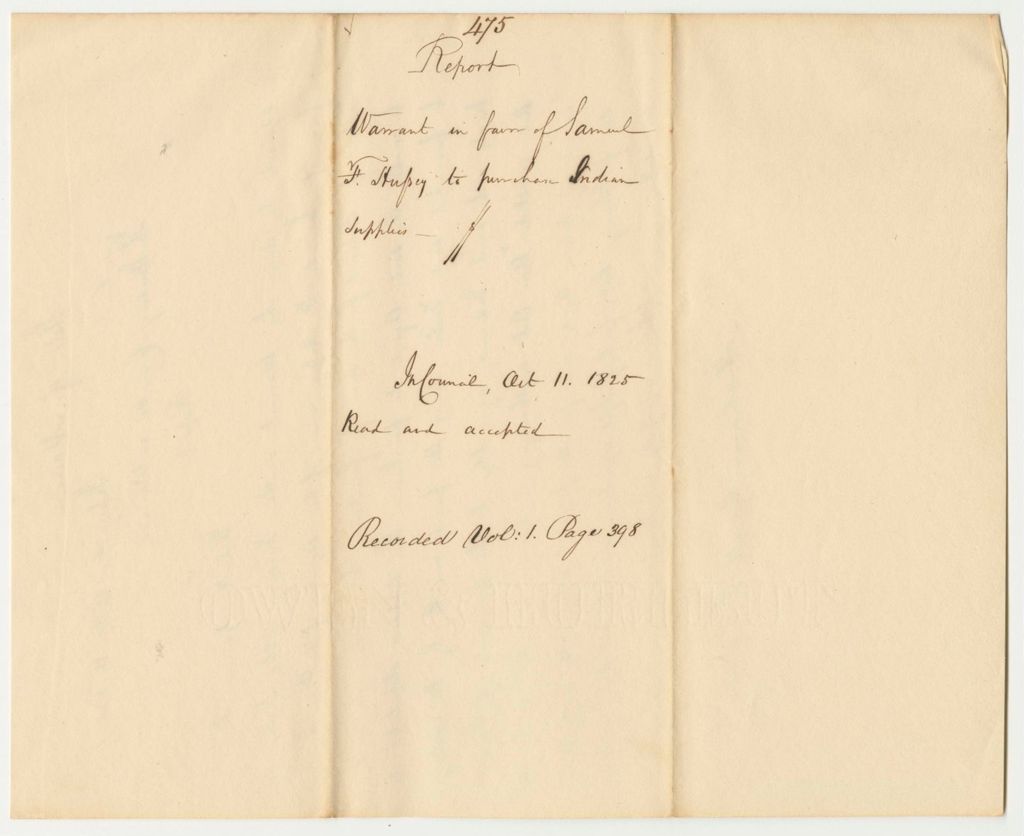 475
Report
Warrant in favor of Samuel
F. Hussey to purchase Indian
supplies —
In Council, Oct 11. 1825
Read and accepted
Recorded Vol: 1. Page 398
OWEN & HURLBUT